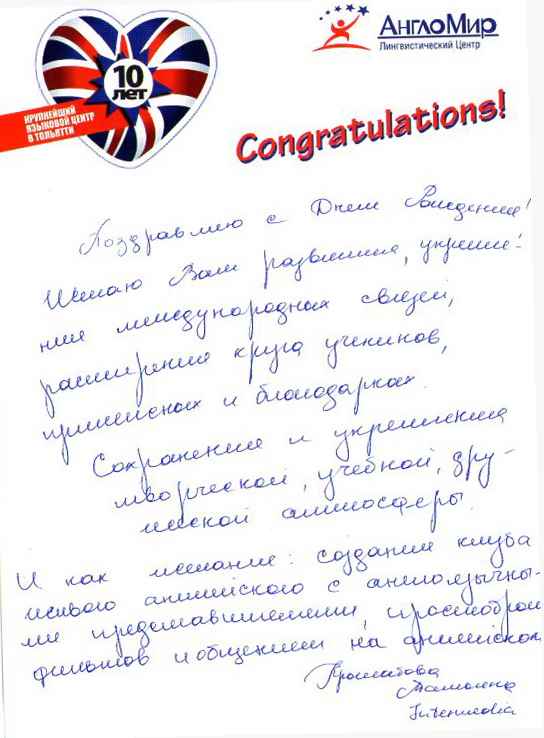 10
ЛЕТ
КРУПНЕЙШИЙ
ЯЗЫКОВОЙ ЦЕНТР
В ТОЛЬЯТТИ
АнглоМир
Лингвистический Центр
Congratulations!
Поздравляю с Днем Рождения!
Желаю Вам развития, укрепле-
ния международных связей,
расширения круга учеников,
прилежных и благодарных.
Сохранения и укрепления
творческой, учебной, дру-
жеской атмосферы.
И как желание: создания клуба
живого английского с англоязычны-
ми представителями, просмотром
фильмов и общением на английском
Татьяна
Intermedia